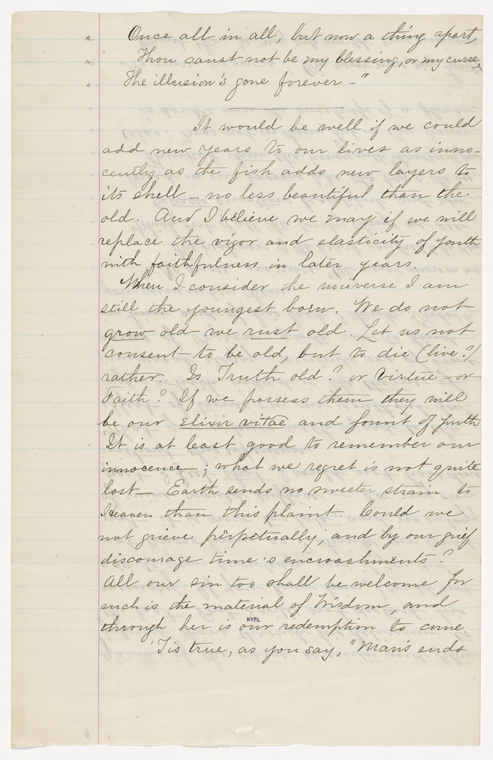 " Once all in all, but now a thing apart,
" Thou canst not be my blessing, or my curse,
" The illusion's gone forever – "
It would be well if we could
add new years to our lives as inno-
cently as the fish adds new layers to
its shell – no less beautiful than the
old. And I believe we may if we will
replace the vigor and elasticity of youth
with faithfulness in later years.
When I consider the universe I am
still the youngest born. We do not
grow old we rust old. Let us not
consent to be old, but to die (live?)
rather. Is Truth old? or Virtue – or
Faith? If we possess them they will
be our elixir vitae and fount of youth
It is at least good to remember our
innocence; what we regret is not quite
lost – Earth sends no sweeter strain to
Heaven than this plaint. Could we
not grieve perpetually, and by our grief
discourage time's encroachments?
All our sin too shall be welcome for
such is the material of Wisdom, and
through her is our redemption to come
NYPL
'Tis true, as you say, "Man's ends